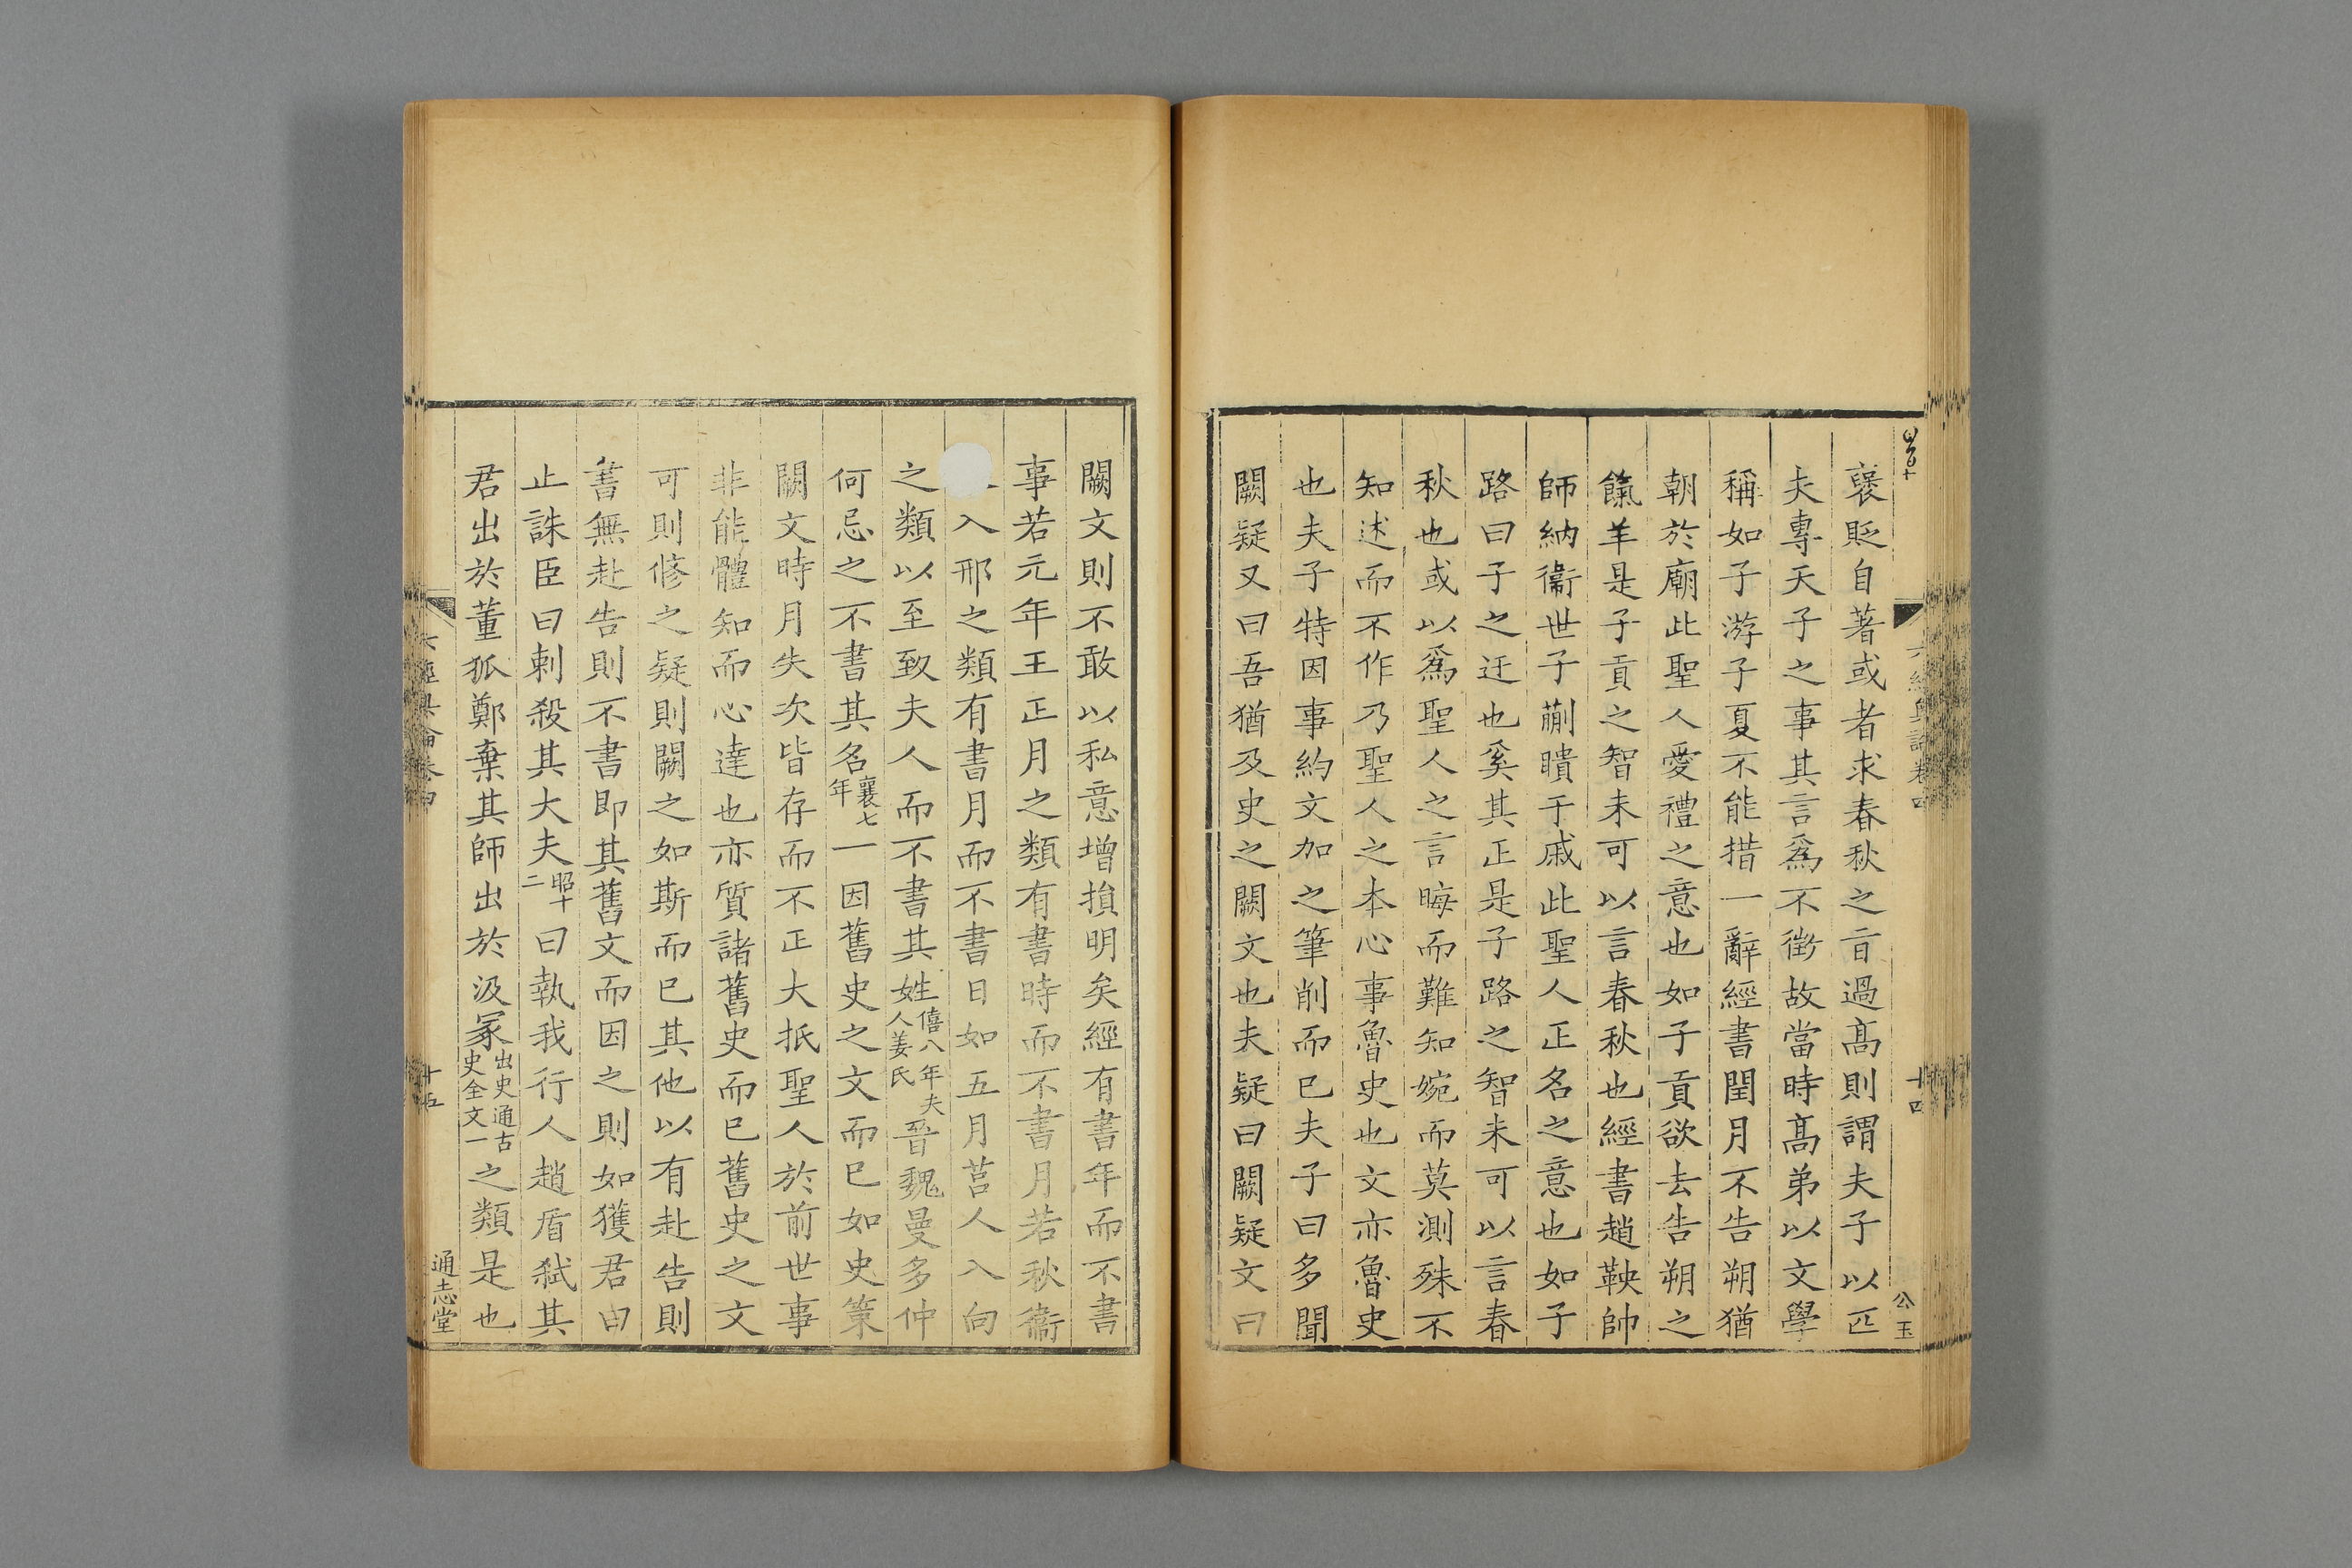 襃貶自著或者求春秋之㫖過髙則謂夫子以匹
夫專天子之事其言爲不徴故當時髙弟以文學
稱如子游子夏不能措一辭經書閏月不告朔猶
朝於廟此聖人愛禮之意也如子貢欲去告朔之
餼羊是子貢之智未可以言春秋也經書趙鞅帥
師納衞世子蒯聵于戚此聖人正名之意也如子
路曰子之迂也奚其正是子路之智未可以言春
秋也或以爲聖人之言晦而難知婉而莫測殊不
知述而不作乃聖人之本心事魯史也文亦魯史
也夫子特因事約文加之筆削而已夫子曰多聞
闕疑又曰吾猶及史之闕文也夫疑曰闕疑文曰
六經奧論卷四
十四
公玉
闕文則不敢以私意增損明矣經有書年而不書
事若元年王正月之類有書時而不書月若秋衞
入邢之類有書月而不書日如五月莒人入向
之類以至致夫人而不書其姓僖八年夫人姜氏晉魏曼多仲
何忌之不書其名襄七年一因舊史之文而已如史策
闕文時月失次皆存而不正大抵聖人於前世事
非能體知而心達也亦質諸舊史而已舊史之文
可則修之疑則闕之如斯而已其他以有赴告則
書無赴告則不書即其舊文而因之則如獲君曰
止誅臣曰刺殺其大夫昭十二曰執我行人趙盾弑其
君出於董狐鄭棄其師出於汲冢出史通古史全文一之類是也
六經奧論卷四
十五
通志堂